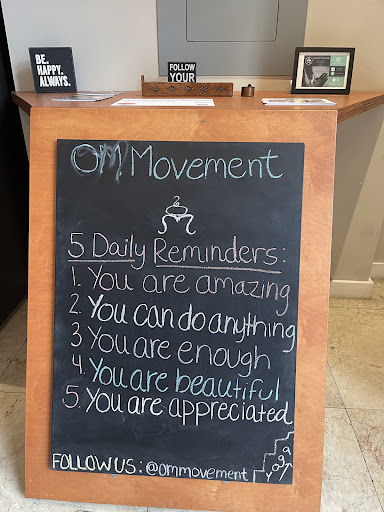 BE.
HAPPY.
ALWAYS.
FOLLOW
YOUR
OM MOVEMENT
5 Daily Reminders:
1. You are amazing
2. You can do anything
3 You are enough
4. You are beautiful
5. You are appreciated
FOLLOW US: @ommovement
YOGA